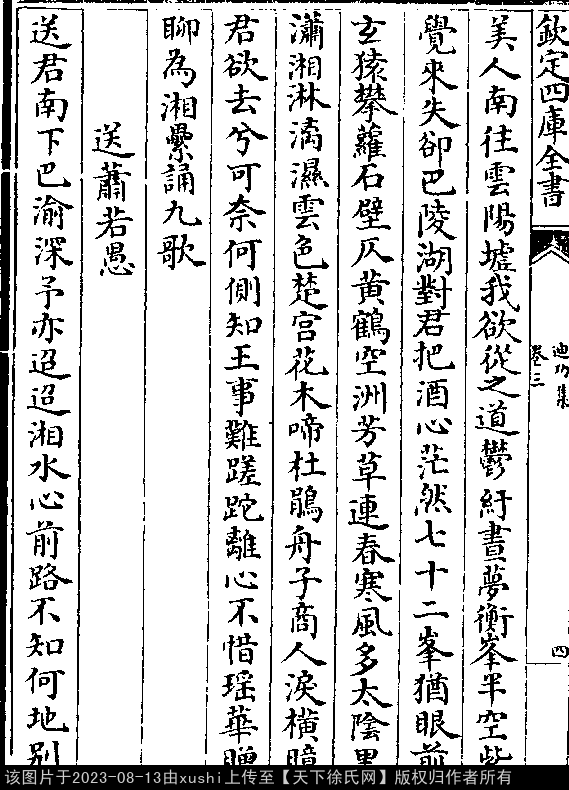 欽定四庫全書
迪功集
卷三
四
美人南往雲陽墟我欲從之道鬱紆晝夢衡峯半空紫
覺來失卻巴陵湖對君把酒心茫然七十二峯猶眼前
玄猿攀蘿石壁仄黄鶴空洲芳草連春寒風多太陰黑
瀟湘淋漓濕雲色楚宫花木啼杜鵑舟子商人淚横臆
君欲去兮可奈何側知王事難蹉跎離心不惜瑶華贈
聊為湘纍誦九歌
送蕭若愚
送君南下巴渝深予亦迢迢湘水心前路不知何地别
该图片于2023-08-13由xushi上传至【天下徐氏网】版权归作者所有